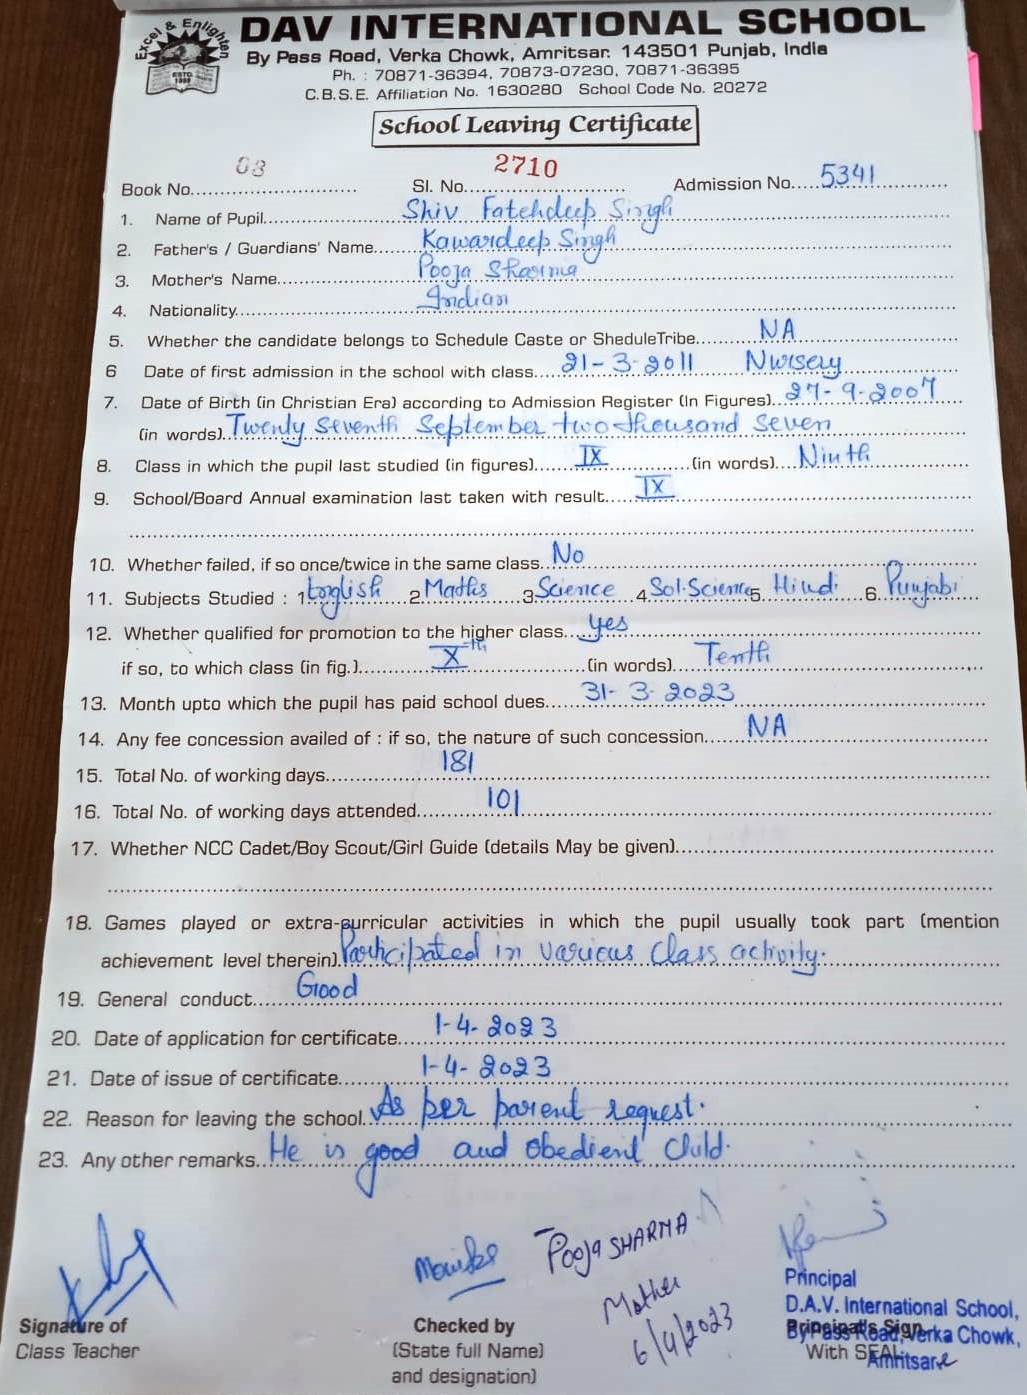 Excel & Enlighten
ESTD. 1998
DAV INTERNATIONAL SCHOOL
By Pass Road, Verka Chowk, Amritsar. 143501 Punjab, India
Ph. : 70871-36394, 70873-07230, 70871-36395
C.B.S.E. Affiliation No. 1630280 School Code No. 20272
School Leaving Certificate
Book No. 03 Sl. No. 2710 Admission No. 5341
1. Name of Pupil Shiv Fatehdeep Singh
2. Father's / Guardians' Name Kawardeep Singh
3. Mother's Name Pooja Sharma
4. Nationality Indian
5. Whether the candidate belongs to Schedule Caste or SheduleTribe NA
6 Date of first admission in the school with class 21-3-2011 Nursery
7. Date of Birth (in Christian Era) according to Admission Register (In Figures) 27-9-2007
(in words) Twenty Seventh September two thousand seven
8. Class in which the pupil last studied (in figures) IX (in words) Ninth
9. School/Board Annual examination last taken with result IX
10. Whether failed, if so once/twice in the same class No
11. Subjects Studied : 1 English 2 Maths 3 Science 4 Sol.Science 5. Hindi 6. Punjabi
12. Whether qualified for promotion to the higher class yes
if so, to which class (in fig.) Xth (in words) Tenth
13. Month upto which the pupil has paid school dues 31-3-2023
14. Any fee concession availed of : if so, the nature of such concession NA
15. Total No. of working days 181
16. Total No. of working days attended 101
17. Whether NCC Cadet/Boy Scout/Girl Guide (details May be given)
18. Games played or extra-curricular activities in which the pupil usually took part (mention
achievement level therein) Participated in various Class activity.
19. General conduct Good
20. Date of application for certificate 1-4-2023
21. Date of issue of certificate 1-4-2023
22. Reason for leaving the school As per parent request.
23. Any other remarks He is good and obedient Child.
Pooja SHARMA
Mother
6/4/2023
Signature of
Class Teacher
Checked by
(State full Name)
and designation)
Principal
D.A.V. International School,
By Pass Road, Verka Chowk,
Amritsar
Principal's Sign
With SEAL